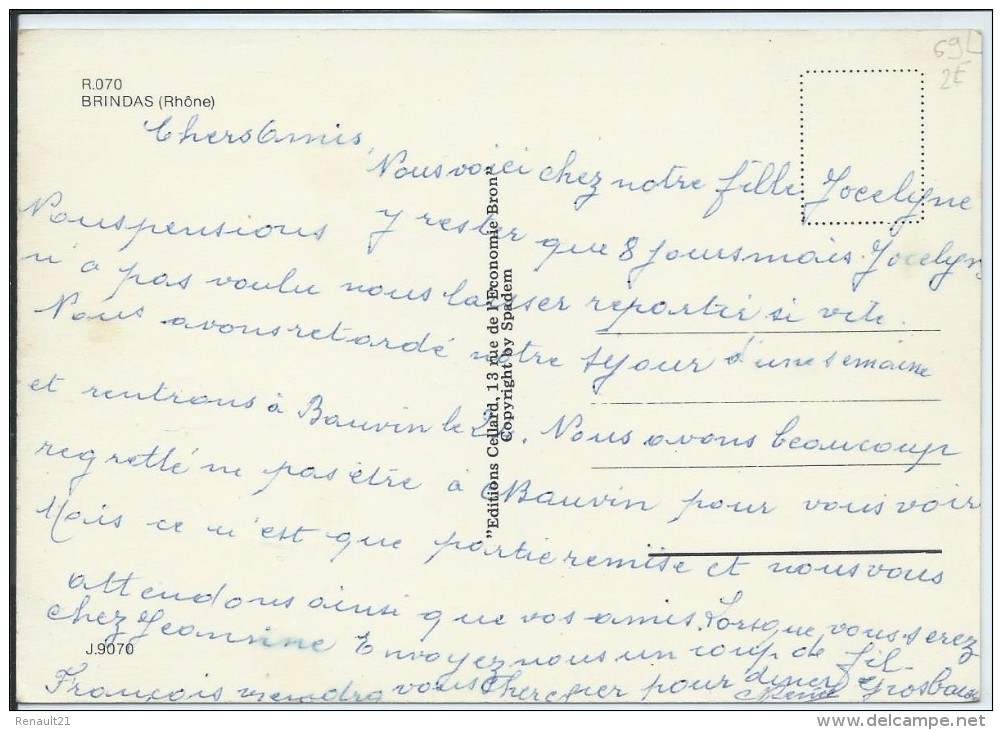 69
2€
R.070
BRINDAS (Rhône)
Chers Amis,
Nous voici chez notre fille Jocelyne
Nous pensions y rester que 8 jours mais Jocelyn
n'a pas voulu nous laisser repartir si vite.
Nous avons retardé notre séjour d'une semaine
et rentrons à Bauvin le 26. Nous avons beaucoup
regretté ne pas être à Bauvin pour vous voir
Mais ce n'est que partie remise et nous vous
attendons ainsi que vos amis. Lorsque vous serez
chez Jeannine Envoyez nous un coup de fil -
François viendra vous chercher pour diner Gros baisers
"Editions Cellard, 13 rue de l'Economie Bron"
Copyright by Spadem
J.9070
Renault21
delcampe.net